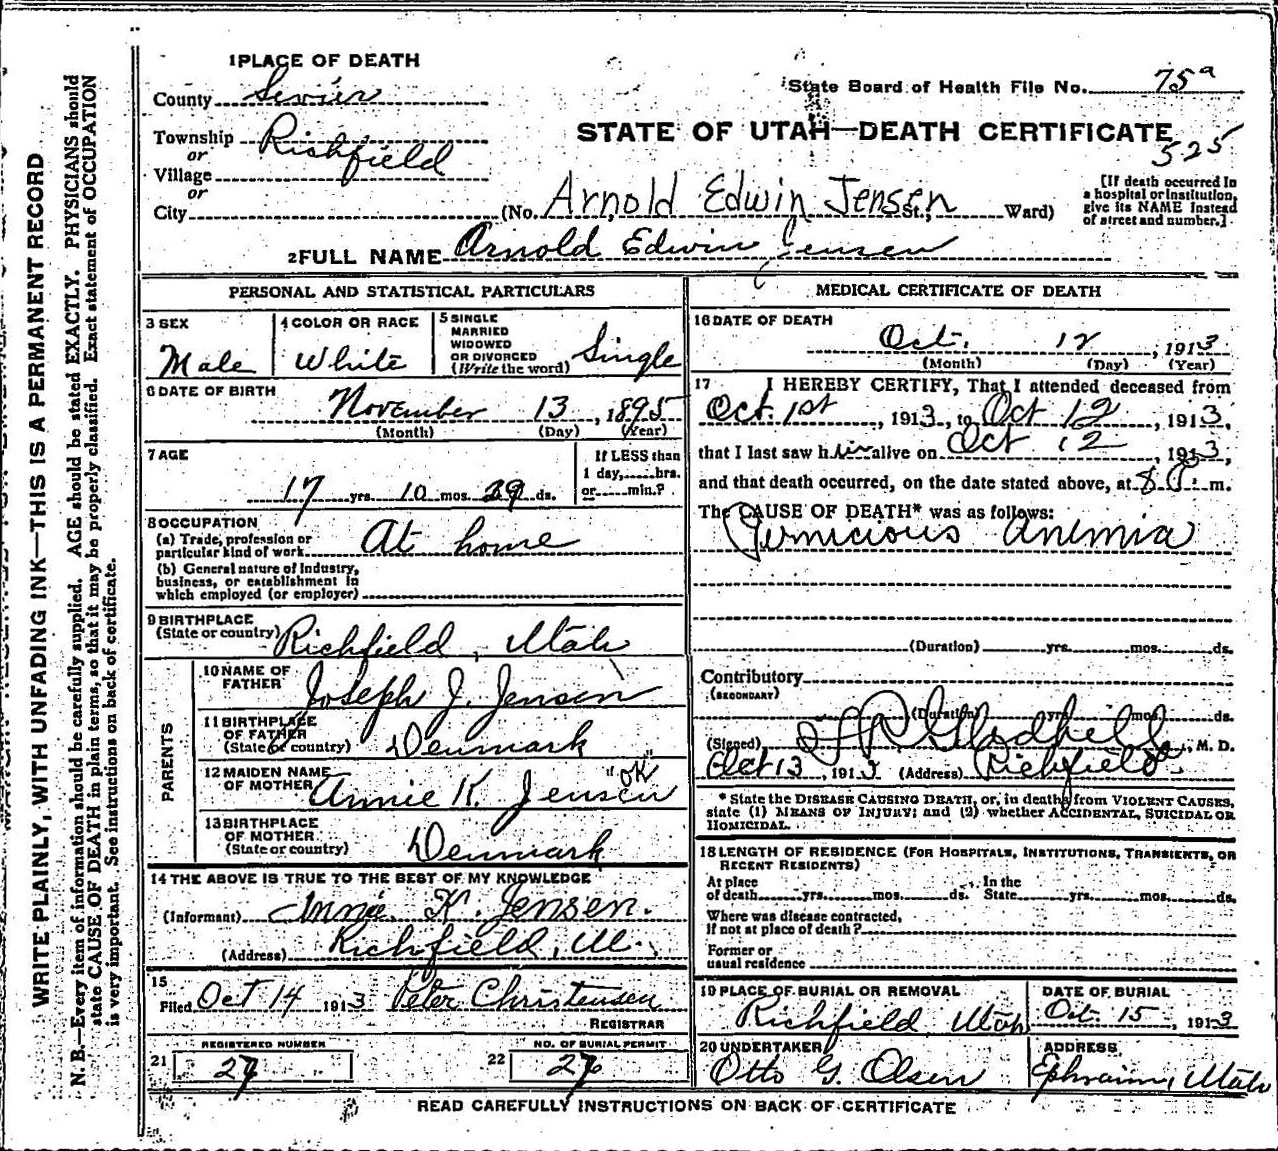 1 PLACE OF DEATH
County Sevier
Township Richfield
or
Village
or
City
State Board of Health File No. 75a
STATE OF UTAH—DEATH CERTIFICATE
525
(No. Arnold Edwin Jensen St.; Ward)
[If death occurred in a hospital or institution, give its NAME instead of street and number.]
2 FULL NAME Arnold Edwin Jensen
PERSONAL AND STATISTICAL PARTICULARS
3 SEX Male
4 COLOR OR RACE White
5 SINGLE MARRIED WIDOWED OR DIVORCED (Write the word) Single
6 DATE OF BIRTH
November 13, 1895
(Month) (Day) (Year)
7 AGE
17 yrs. 10 mos. 29 ds.
If LESS than 1 day, hrs. or min.?
8 OCCUPATION
(a) Trade, profession or particular kind of work At home
(b) General nature of Industry, business, or establishment in which employed (or employer)
9 BIRTHPLACE
(State or country) Richfield, Utah
PARENTS
10 NAME OF FATHER Joseph J. Jensen
11 BIRTHPLACE OF FATHER (State or country) Denmark
12 MAIDEN NAME OF MOTHER Annie K. Jensen "OK"
13 BIRTHPLACE OF MOTHER (State or country) Denmark
14 THE ABOVE IS TRUE TO THE BEST OF MY KNOWLEDGE
(Informant) Annie K. Jensen.
(Address) Richfield, Ut.
15
Filed Oct 14 1913 Peter Christensen
REGISTRAR
21 REGISTERED NUMBER
27
22 NO. OF BURIAL PERMIT
27
MEDICAL CERTIFICATE OF DEATH
16 DATE OF DEATH
Oct. 12, 1913
(Month) (Day) (Year)
17 I HEREBY CERTIFY, That I attended deceased from
Oct. 1st, 1913, to Oct 12, 1913,
that I last saw him alive on Oct 12, 1913,
and that death occurred, on the date stated above, at 8 P. m.
The CAUSE OF DEATH* was as follows:
Pernicious Anemia
(Duration) yrs. mos. ds.
Contributory
(SECONDARY)
(Duration) yrs. mos. ds.
(Signed) , M. D.
Oct 13, 1913 (Address) Richfield
* State the DISEASE CAUSING DEATH, or, in deaths from VIOLENT CAUSES, state (1) MEANS OF INJURY; and (2) whether ACCIDENTAL, SUICIDAL OR HOMICIDAL.
18 LENGTH OF RESIDENCE (FOR HOSPITALS, INSTITUTIONS, TRANSIENTS, OR RECENT RESIDENTS)
At place of death yrs. mos. ds. In the State yrs. mos. ds.
Where was disease contracted, if not at place of death?
Former or usual residence
19 PLACE OF BURIAL OR REMOVAL
Richfield, Utah
DATE OF BURIAL
Oct. 15, 1913
20 UNDERTAKER
Otto G. Olsen
ADDRESS
Ephraim, Utah
READ CAREFULLY INSTRUCTIONS ON BACK OF CERTIFICATE
WRITE PLAINLY, WITH UNFADING INK—THIS IS A PERMANENT RECORD
N. B.—Every item of information should be carefully supplied. AGE should be stated EXACTLY. PHYSICIANS should
state CAUSE OF DEATH in plain terms, so that it may be properly classified. Exact statement of OCCUPATION
is very important. See instructions on back of certificate.